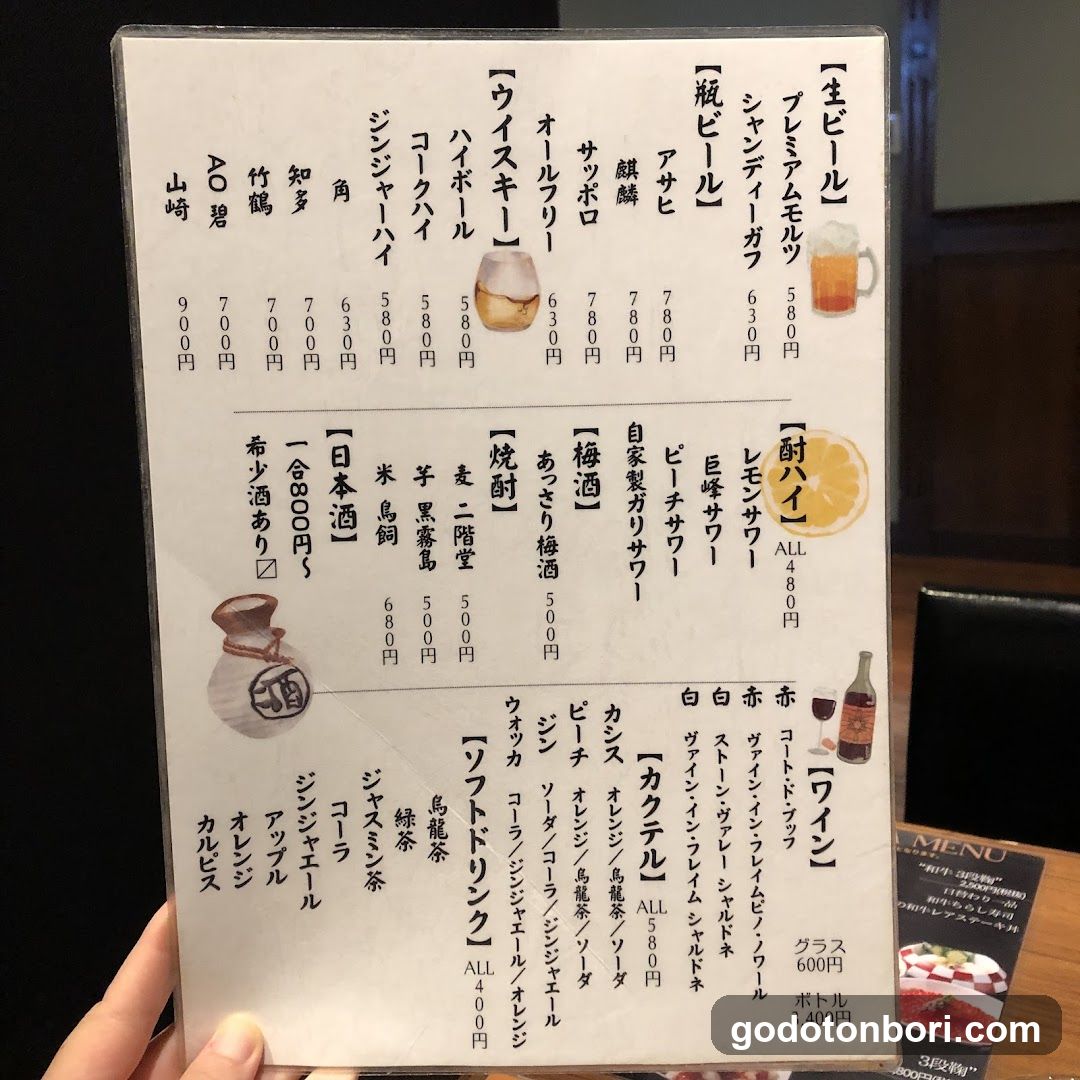 【生ビール】
プレミアムモルツ 580円
シャンディーガフ 630円
【瓶ビール】
アサヒ 780円
麒麟 780円
サッポロ 780円
オールフリー 630円
【ウイスキー】
ハイボール 580円
コークハイ 580円
ジンジャーハイ 580円
角 630円
知多 700円
竹鶴 700円
AO 碧 700円
山崎 900円
【酎ハイ】 ALL 480円
レモンサワー
巨峰サワー
ピーチサワー
自家製ガリサワー
【梅酒】
あっさり梅酒 500円
【焼酎】
麦 二階堂 500円
芋 黒霧島 500円
米 鳥飼 680円
【日本酒】
一合800円〜
希少酒あり〼
酒
【ワイン】
グラス
600円
ボトル
赤 コート・ド・ブッフ
赤 ヴァイン・イン・フレイムピノ・ノワール
白 ストーン・ヴァレー シャルドネ
白 ヴァイン・イン・フレイム シャルドネ
【カクテル】 ALL 580円
カシス オレンジ／烏龍茶／ソーダ
ピーチ オレンジ／烏龍茶／ソーダ
ジン ソーダ／コーラ／ジンジャエール
ウォッカ コーラ／ジンジャエール／オレンジ
【ソフトドリンク】 ALL 400円
烏龍茶
緑茶
ジャスミン茶
コーラ
ジンジャエール
アップル
オレンジ
カルピス
MENU
"和牛 3段鞠"
2,500円(税抜)
日替わり一品
和牛ちらし寿司
の和牛レアステーキ丼
3段鞠"
godotonbori.com